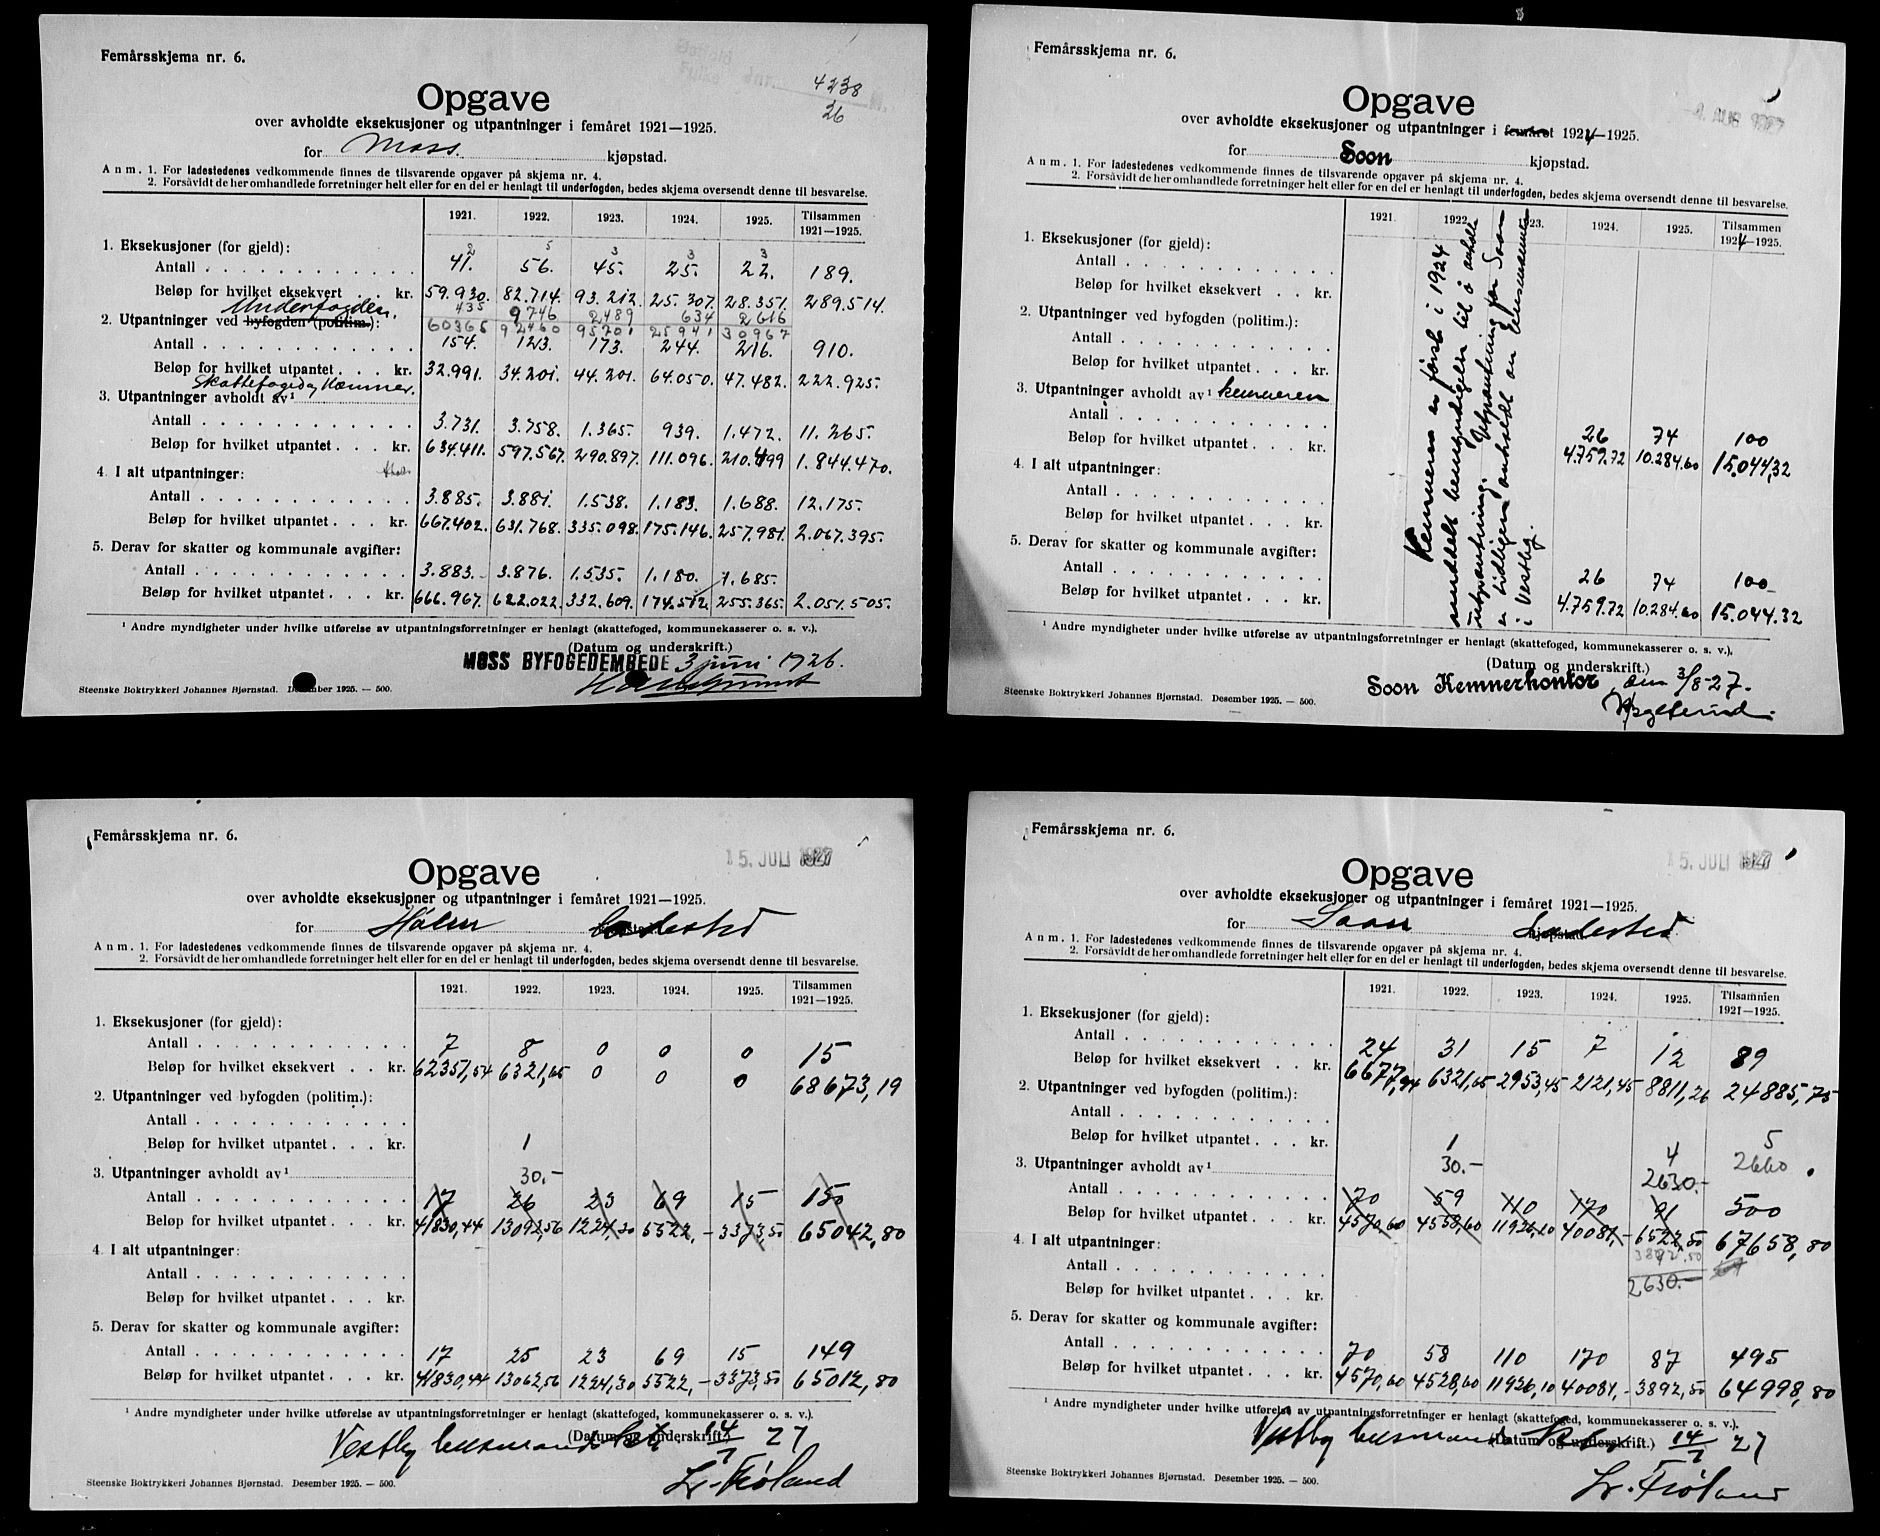 Femårsskjema nr. 6.
4238
26
Opgave
over avholdte eksekusjoner og utpantninger i femåret 1921—1925.
for Moss. kjøpstad.
Anm. 1. For ladestedenes vedkommende finnes de tilsvarende opgaver på skjema nr. 4.
2. Forsåvidt de her omhandlede forretninger helt eller for en del er henlagt til underfogden, bedes skjema oversendt denne til besvarelse.
1921. 1922. 1923. 1924. 1925. Tilsammen 1921—1925.
1. Eksekusjoner (for gjeld):
2 5 3 3 3
Antall 41. 56. 45. 25. 22. 189.
Beløp for hvilket eksekvert kr. 59.930. 82.714. 93.212. 25.307. 28.351. 289.514.
Underfogden.
435 9746 2489 634 2616
2. Utpantninger ved byfogden (politim.):
60365 92460 95701 25941 30967
Antall 154. 123. 173. 244. 216. 910.
Beløp for hvilket utpantet kr. 32.991. 34.201. 44.201. 64.050. 47.482. 222.925.
Skattefoged og Kæmner.
3. Utpantninger avholdt av¹
Antall 3.731. 3.758. 1.365. 939. 1.472. 11.265.
Beløp for hvilket utpantet kr. 634.411. 597.567. 290.897. 111.096. 210.499 1.844.470.
4. I alt utpantninger:
Antall 3.885. 3.881. 1.538. 1.183. 1.688. 12.175.
Beløp for hvilket utpantet kr. 667.402. 631.768. 335.098. 175.146. 257.981. 2.067.395.
5. Derav for skatter og kommunale avgifter:
Antall 3.883. 3.876. 1.535. 1.180. 1.685.
Beløp for hvilket utpantet kr. 666.967. 622.022. 332.609. 174.512. 255.365. 2.051.505.
¹ Andre myndigheter under hvilke utførelse av utpantningsforretninger er henlagt (skattefoged, kommunekasserer o. s. v.).
(Datum og underskrift.)
MOSS BYFOGEDEMBEDE 3 juni 1926.
Steenske Boktrykkeri Johannes Bjørnstad. Desember 1925. — 500.
Femårsskjema nr. 6.
AUG 1927
Opgave
over avholdte eksekusjoner og utpantninger i femåret 1924—1925.
for Soon kjøpstad.
Anm. 1. For ladestedenes vedkommende finnes de tilsvarende opgaver på skjema nr. 4.
2. Forsåvidt de her omhandlede forretninger helt eller for en del er henlagt til underfogden, bedes skjema oversendt denne til besvarelse.
1921. 1922. 1923. 1924. 1925. Tilsammen 1924—1925.
1. Eksekusjoner (for gjeld):
Antall
Beløp for hvilket eksekvert kr.
2. Utpantninger ved byfogden (politim.):
Antall
Beløp for hvilket utpantet kr.
3. Utpantninger avholdt av¹ kemneren
Antall 26 74 100
Beløp for hvilket utpantet kr. 4.759.72 10.284.60 15.044,32
4. I alt utpantninger:
Antall
Beløp for hvilket utpantet kr.
5. Derav for skatter og kommunale avgifter:
Antall 26 74 100
Beløp for hvilket utpantet kr. 4.759.72 10.284.60 15.044.32
Kemneren er først i 1924
meddelt bemyndigelse til å avholde
utpantning. Utpantning for Soon
er tidligere avholdt av lensmannen
i Vestby.
¹ Andre myndigheter under hvilke utførelse av utpantningsforretninger er henlagt (skattefoged, kommunekasserer o. s. v.).
(Datum og underskrift.)
Soon Kemnerkontor den 3/8-27.
Steenske Boktrykkeri Johannes Bjørnstad. Desember 1925. — 500.
Femårsskjema nr. 6.
15. JULI 1927
Opgave
over avholdte eksekusjoner og utpantninger i femåret 1921—1925.
for Hølen Ladested
Anm. 1. For ladestedenes vedkommende finnes de tilsvarende opgaver på skjema nr. 4.
2. Forsåvidt de her omhandlede forretninger helt eller for en del er henlagt til underfogden, bedes skjema oversendt denne til besvarelse.
1921. 1922. 1923. 1924. 1925. Tilsammen 1921—1925.
1. Eksekusjoner (for gjeld):
Antall 7 8 0 0 0 15
Beløp for hvilket eksekvert kr. 62351,54 6321,65 0 0 0 68673,19
2. Utpantninger ved byfogden (politim.):
Antall
Beløp for hvilket utpantet kr. 1
3. Utpantninger avholdt av¹ 30.—
Antall 17 26 23 69 15 150
Beløp for hvilket utpantet kr. 41830,44 13092,56 1224,30 5522,— 3373,50 65042,80
4. I alt utpantninger:
Antall
Beløp for hvilket utpantet kr.
5. Derav for skatter og kommunale avgifter:
Antall 17 25 23 69 15 149
Beløp for hvilket utpantet kr. 41830,44 13062,56 1224,30 5522,— 3373,50 65012,80
¹ Andre myndigheter under hvilke utførelse av utpantningsforretninger er henlagt (skattefoged, kommunekasserer o. s. v.).
(Datum og underskrift.)
Vestby lensmannsktr. 14/7 27
Steenske Boktrykkeri Johannes Bjørnstad. Desember 1925. — 500.
Lr. Frøland
Femårsskjema nr. 6.
15. JULI 1927
Opgave
over avholdte eksekusjoner og utpantninger i femåret 1921—1925.
for Soon kjøpstad Ladested
Anm. 1. For ladestedenes vedkommende finnes de tilsvarende opgaver på skjema nr. 4.
2. Forsåvidt de her omhandlede forretninger helt eller for en del er henlagt til underfogden, bedes skjema oversendt denne til besvarelse.
1921. 1922. 1923. 1924. 1925. Tilsammen 1921—1925.
1. Eksekusjoner (for gjeld):
Antall 24 31 15 7 12 89
Beløp for hvilket eksekvert kr. 6677,94 6321,65 2953,45 2121,45 8811,26 24885,75
2. Utpantninger ved byfogden (politim.):
Antall
Beløp for hvilket utpantet kr. 1 4 5
3. Utpantninger avholdt av¹ 30.— 2630.— 2660
Antall 70 59 110 170 91 500
Beløp for hvilket utpantet kr. 4570,60 4558,60 11926,10 40081,— 6522,50 67658,80
4. I alt utpantninger: 3892.50
Antall 2630.—
Beløp for hvilket utpantet kr.
5. Derav for skatter og kommunale avgifter:
Antall 70 58 110 170 87 495
Beløp for hvilket utpantet kr. 4570,60 4528,60 11926,10 40081,— 3892,50 64998,80
¹ Andre myndigheter under hvilke utførelse av utpantningsforretninger er henlagt (skattefoged, kommunekasserer o. s. v.).
(Datum og underskrift.)
Vestby lensmannsktr. 14/7 27
Steenske Boktrykkeri Johannes Bjørnstad. Desember 1925. — 500.
Lr. Frøland